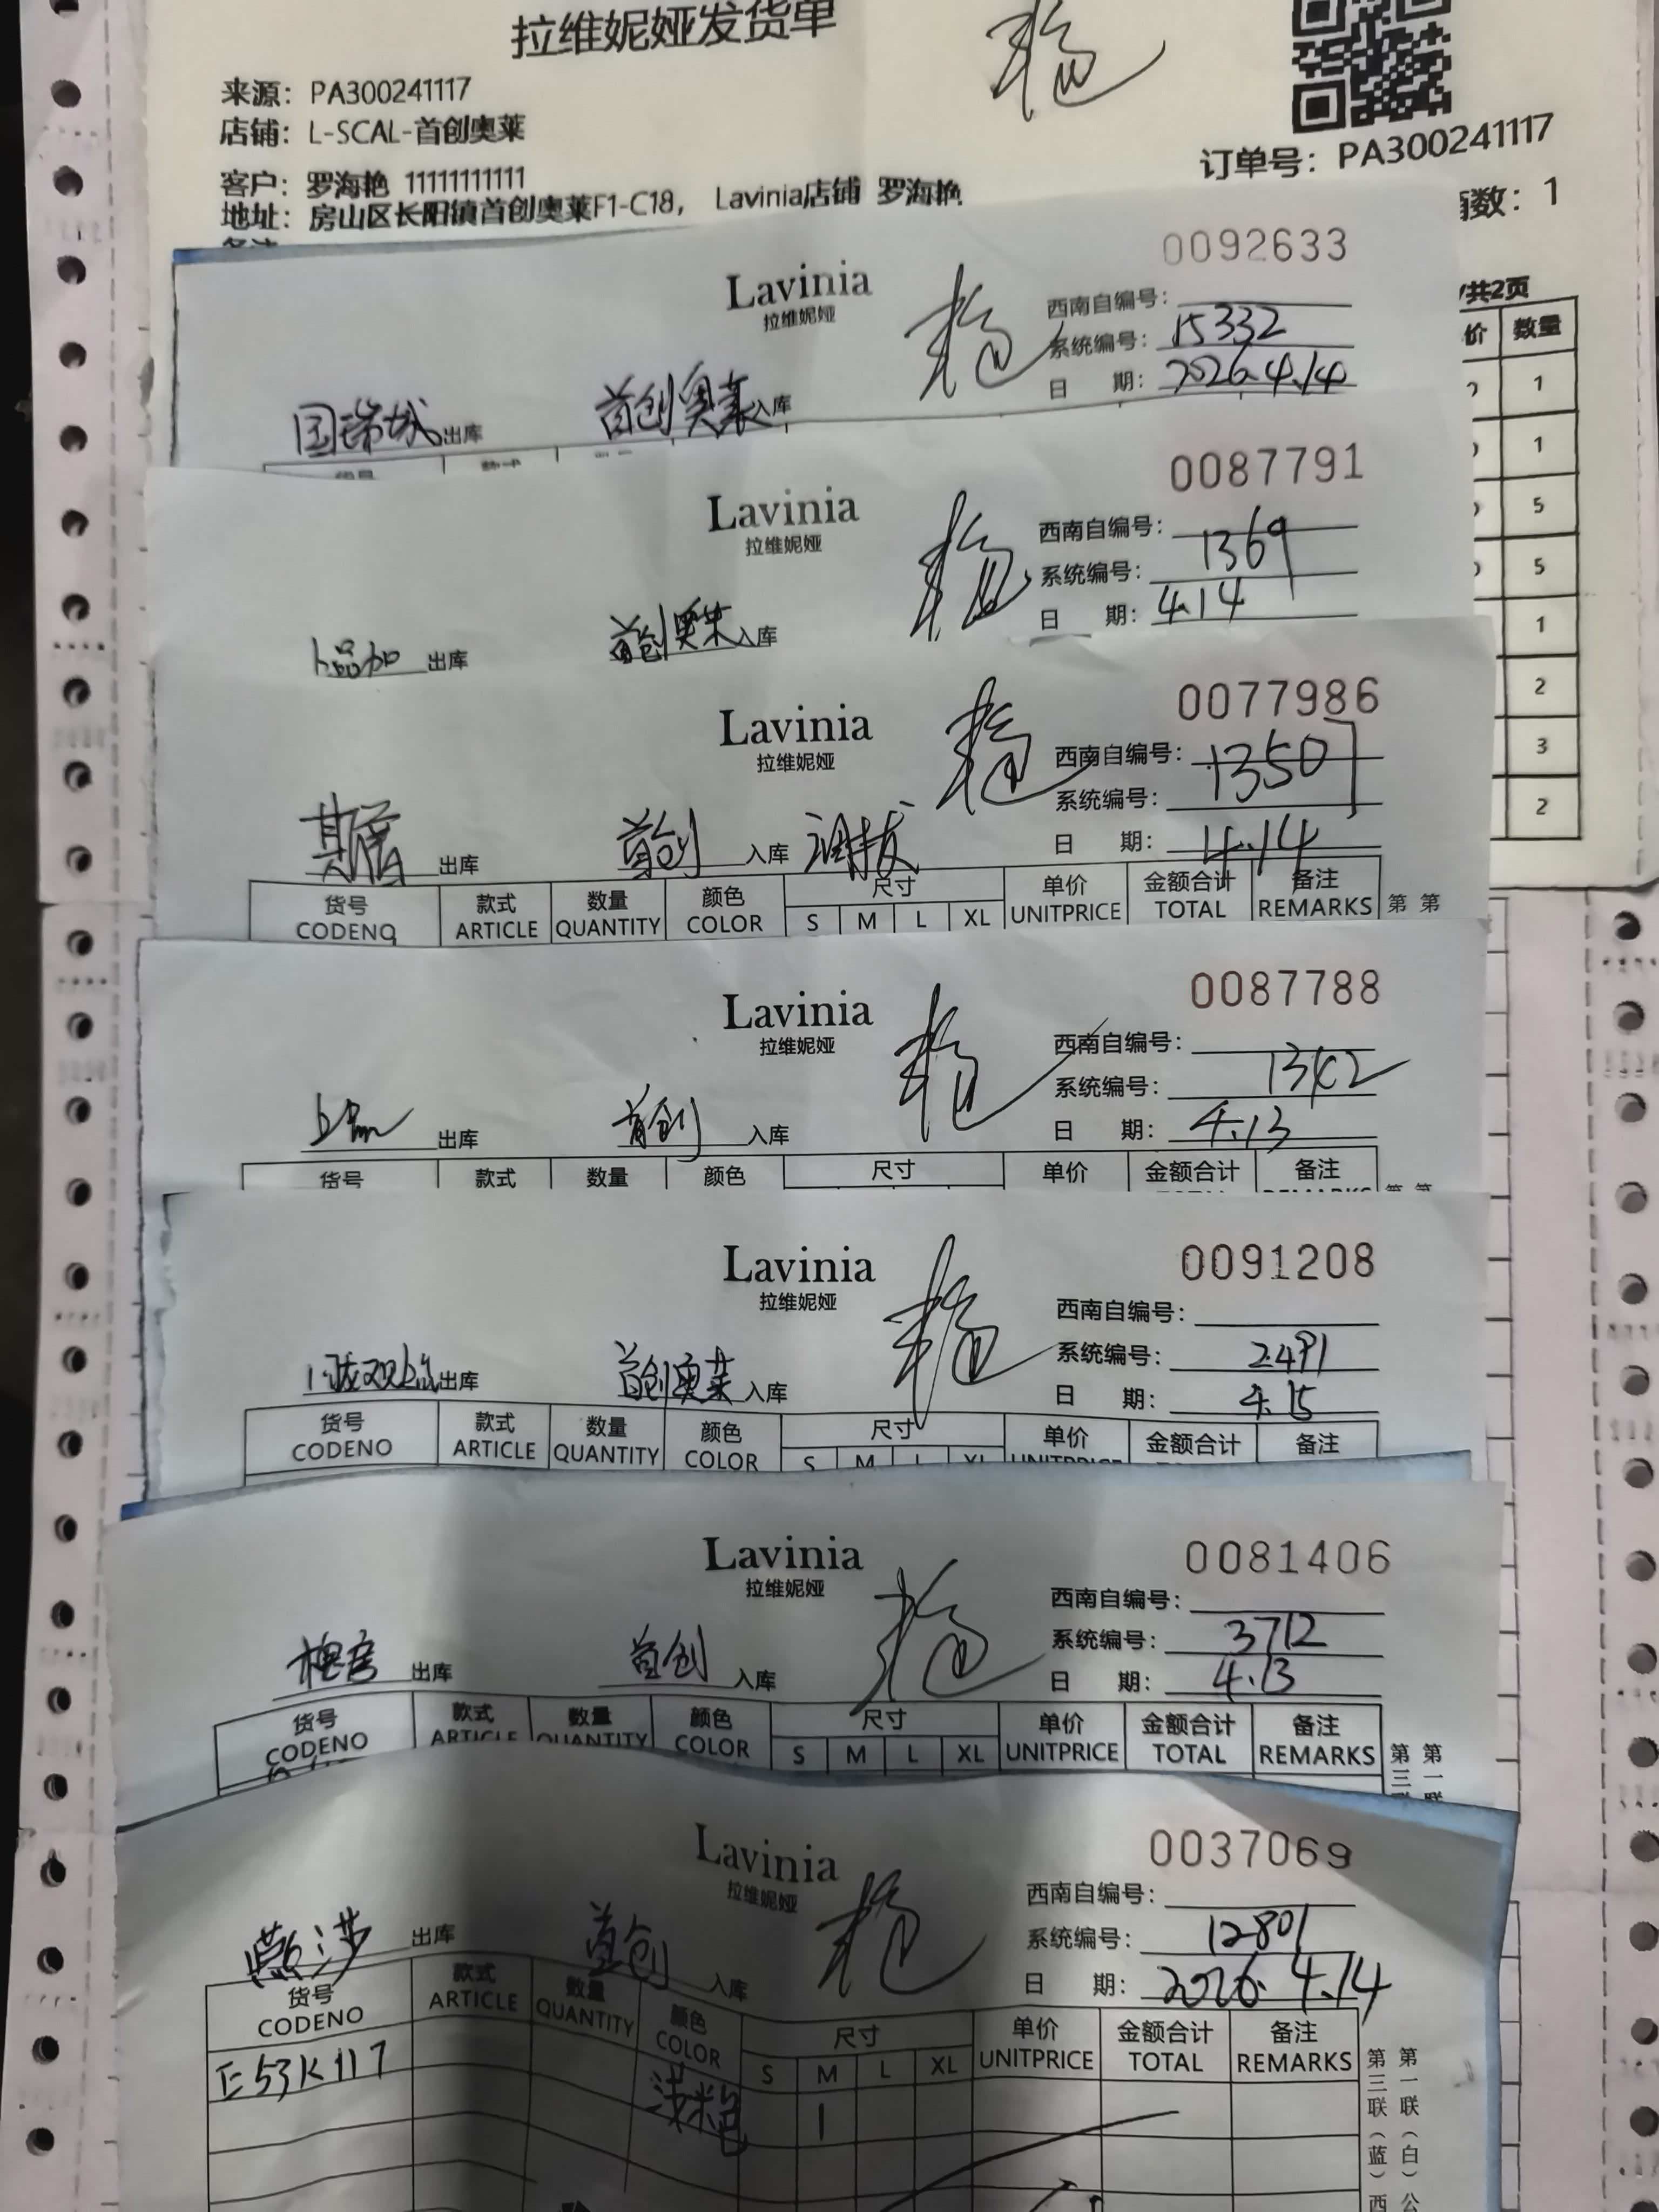 拉维妮娅发货单
来源: PA300241117
店铺: L-SCAL-首创奥莱
客户: 罗海艳 11111111111
地址: 房山区长阳镇首创奥莱F1-C18, Lavinia店铺 罗海艳
订单号: PA300241117
数: 1
共2页
价 数量
1
1
5
5
1
2
3
2
0092633
Lavinia
拉维妮娅
西南自编号:
系统编号: 15332
日 期: 2026.4.14
国瑞城 出库 首创奥莱 入库
0087791
Lavinia
拉维妮娅
西南自编号:
系统编号: 1369
日 期: 4.14
上品加 出库 首创奥莱 入库
0077986
Lavinia
拉维妮娅
西南自编号: 13507
系统编号:
日 期: 4.14
出库 首创 入库 调拔
货号 款式 数量 颜色 尺寸 单价 金额合计 备注
CODENO ARTICLE QUANTITY COLOR S M L XL UNITPRICE TOTAL REMARKS 第 第
0087788
Lavinia
拉维妮娅
西南自编号:
系统编号:
日 期: 4.13
上品 出库 首创 入库
货号 款式 数量 颜色 尺寸 单价 金额合计 备注
0091208
Lavinia
拉维妮娅
西南自编号:
系统编号: 2491
日 期: 4.15
出库 首创奥莱 入库
货号 款式 数量 颜色 尺寸 单价 金额合计 备注
CODENO ARTICLE QUANTITY COLOR S M L XL UNITPRICE
0081406
Lavinia
拉维妮娅
西南自编号:
系统编号: 3712
日 期: 4.13
槐房 出库 首创 入库
货号 款式 数量 颜色 尺寸 单价 金额合计 备注
CODENO ARTICLE QUANTITY COLOR S M L XL UNITPRICE TOTAL REMARKS 第三联 第一联
0037069
Lavinia
拉维妮娅
西南自编号:
系统编号: 12801
日 期: 2026.4.14
燕莎 出库 首创 入库
货号 款式 数量 颜色 尺寸 单价 金额合计 备注
CODENO ARTICLE QUANTITY COLOR S M L XL UNITPRICE TOTAL REMARKS
E53K117 浅米色 1
第三联(蓝)西
第一联(白)公